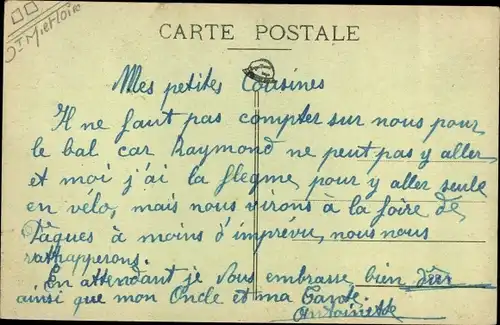 CARTE POSTALE
Mes petites Cousines
Il ne faut pas compter sur nous pour
le bal car Raymond ne peut pas y aller
et moi j'ai la flegme pour y aller seule
en vélo, mais nous virons à la foire de
Pâques à moins d'imprévu, nous nous
rattrapperons.
En attendant je vous embrasse bien dur
ainsi que mon Oncle et ma Tante.
Antoinette